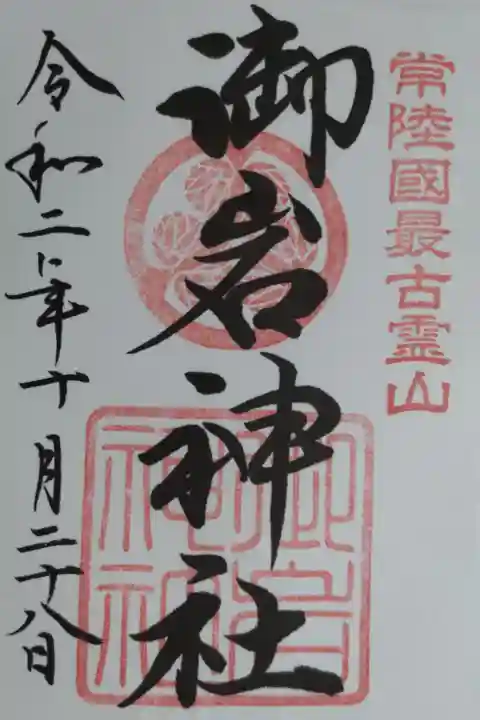 常陸國最古霊山
御岩神社
御岩
神社
令和二年十月二十八日